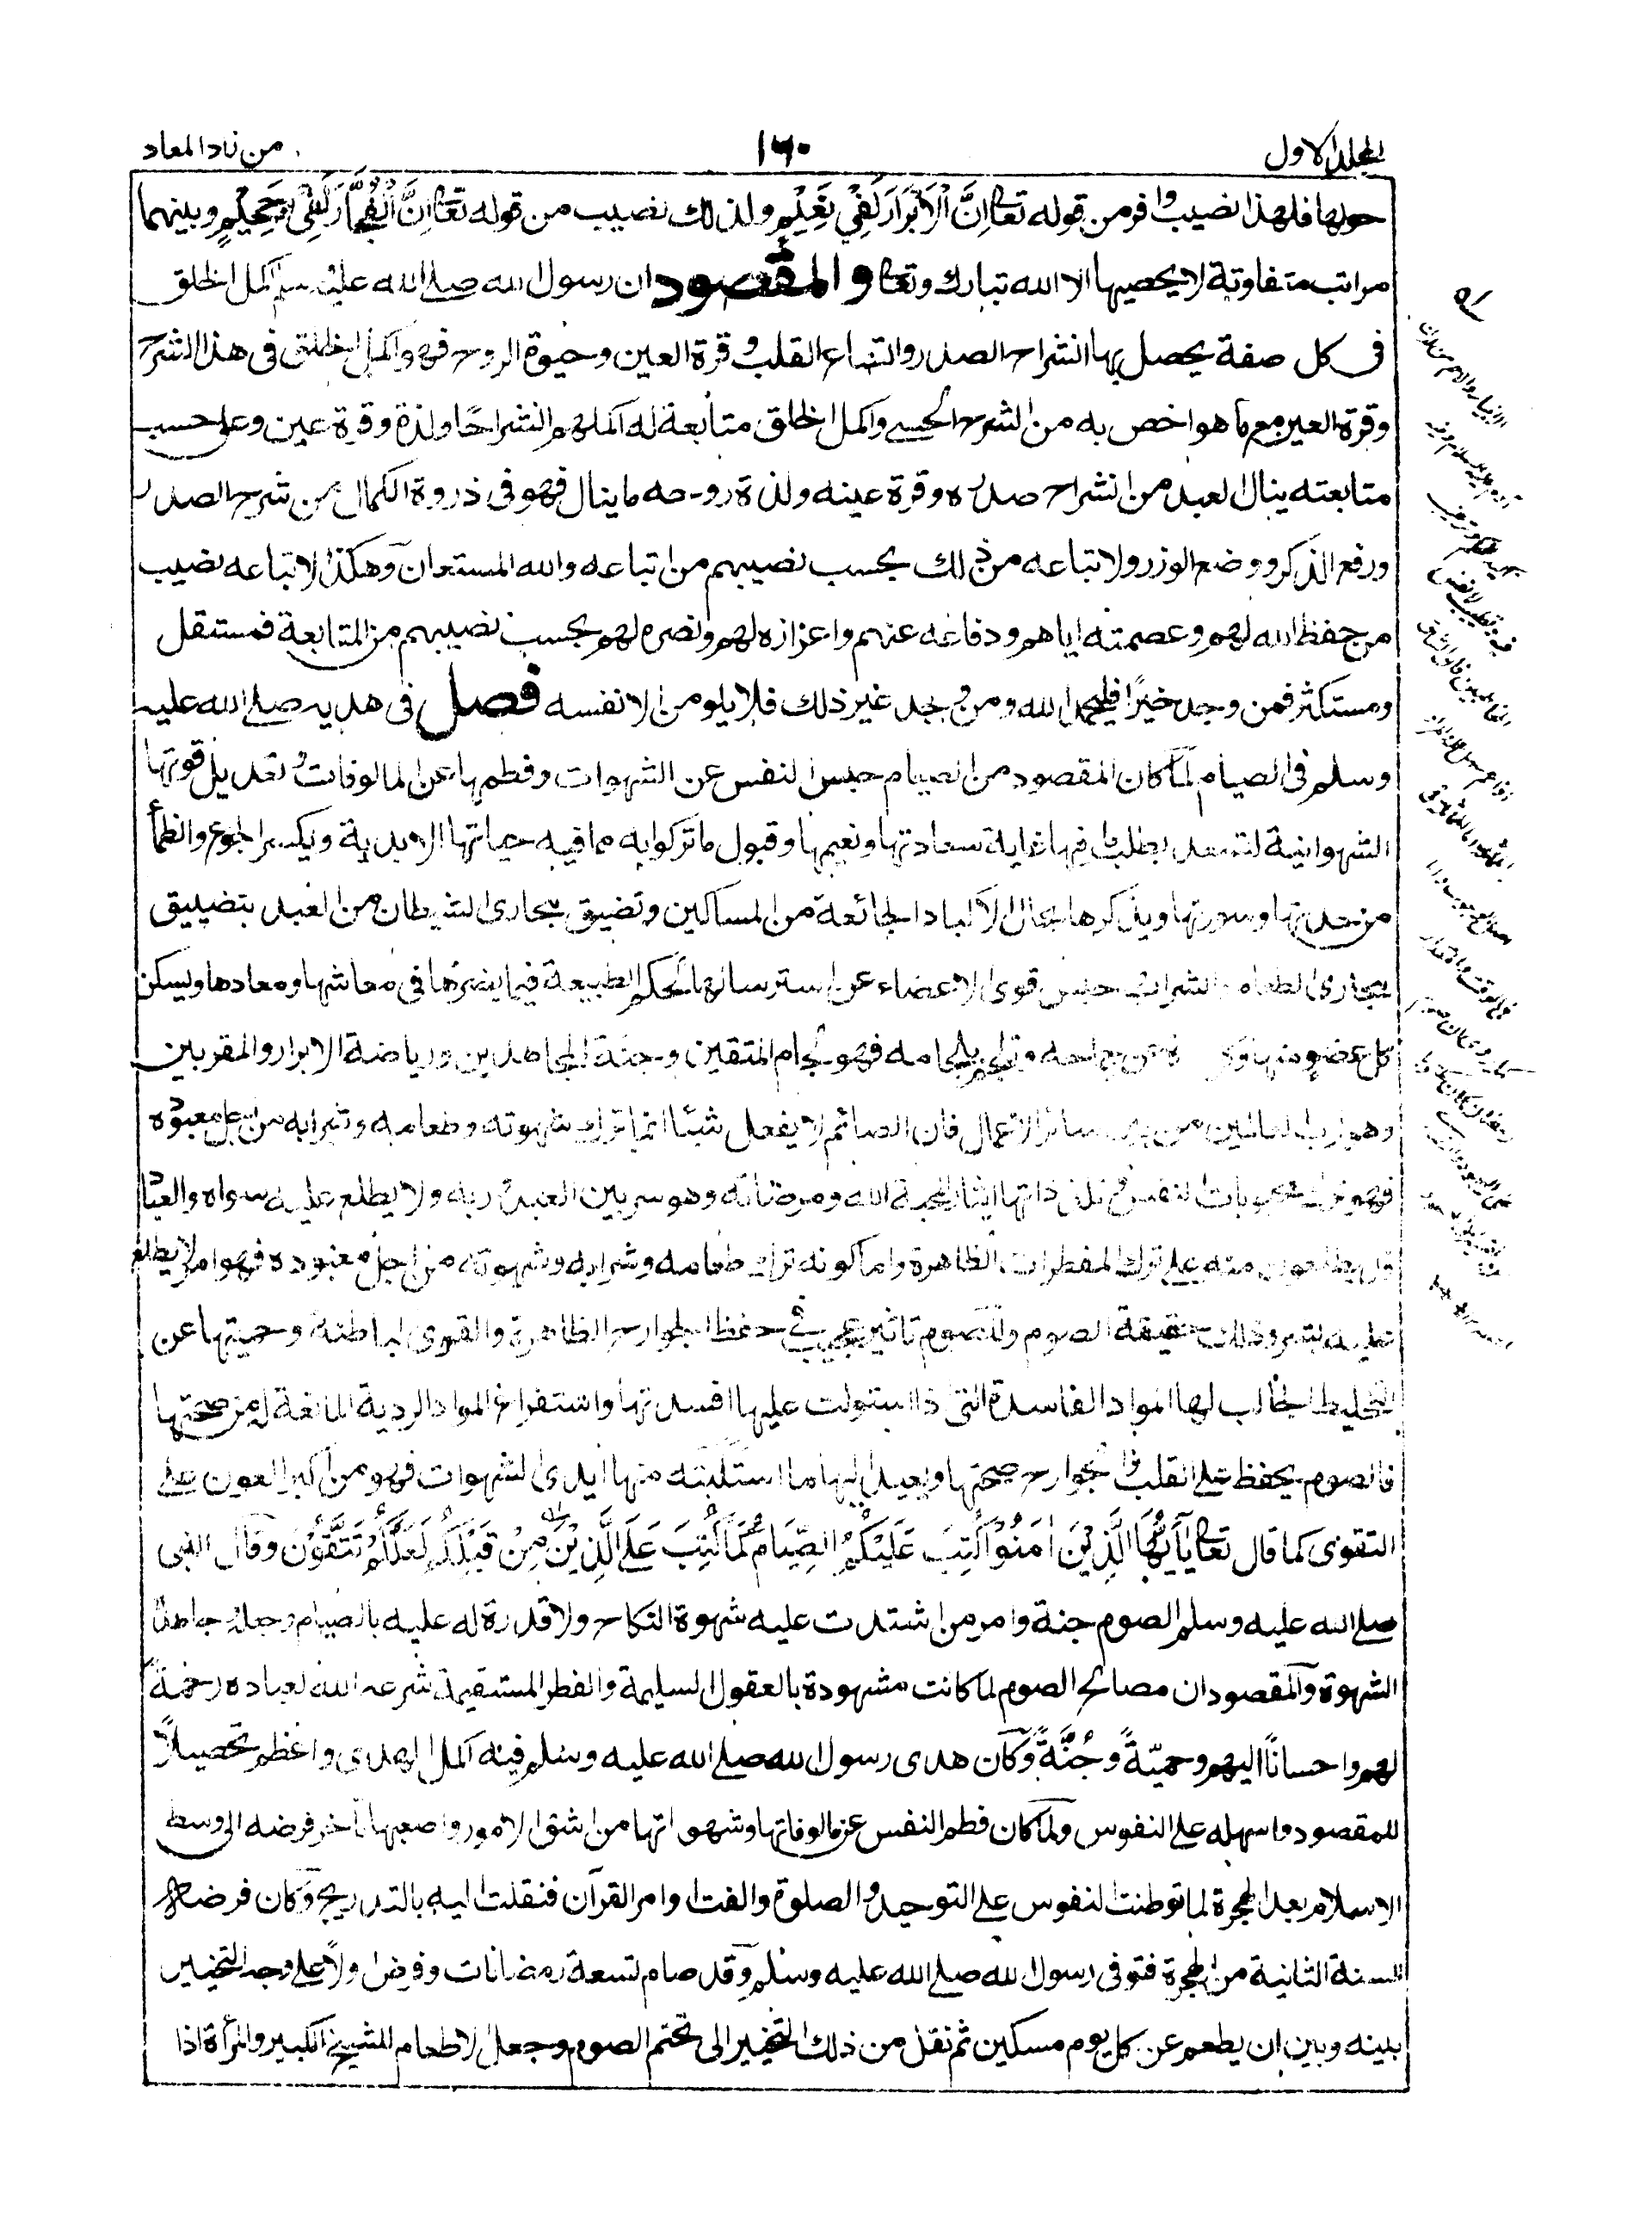 المجلد الاول
١٦٠
من زاد المعاد
حولها فلهذا نصيب وافر من قوله تعا اِنَّ الْاَبْرَارَ لَفِيْ نَعِيْمٍ ولذلك نصيب من قوله تعا اِنَّ الْفُجَّارَ لَفِيْ جَحِيْمٍ وبينهما
مراتب متفاوتة لا يحصيها الا الله تبارك وتعا والمقصود ان رسول الله صلے الله عليه وسلم اكمل الخلق
فى كل صفة يحصل بها انشراح الصدر واتساع القلب وقرة العين وحيوة الروح فهو اكمل الخلق فى هذا الشرح
وقرة العين مع ما هو اخص به من الشرح الحسے واكمل الخلق متابعة له اكملهم انشراحًا ولذة وقرة عين وعلى حسب
متابعته ينال العبد من انشراح صدره وقرة عينه ولذة روحه ما ينال فهو فى ذروة الكمال من شرح الصدر
ورفع الذكر ووضع الوزر ولاتباعه من ذلك بحسب نصيبهم من اتباعه والله المستعان وهكذا لاتباعه نصيب
من حفظ الله لهم وعصمته اياهم ودفاعه عنهم واعزازه لهم ونصره لهم بحسب نصيبهم من المتابعة فمستقل
ومستكثر فمن وجد خيرًا فليحمد الله ومن وجد غير ذلك فلا يلومن الا نفسه فصل فى هديه صلے الله عليه
وسلم فى الصيام لما كان المقصود من الصيام حبس النفس عن الشهوات وفطمها عن المالوفات وتعديل قوتها
الشهوانية لتستعد لطلب ما فيها غاية سعادتها ونعيمها وقبول ما تزكوا به مما فيه حياتها الابدية ويكسر الجوع والظمأ
من حدتها وسورتها ويذكرها بحال الاكباد الجائعة من المساكين وتضيق مجارى الشيطان من العبد بتضييق
مجارى الطعام والشراب حبس قوى الاعضاء عن استرسالها لحكم الطبيعة فيما يضرها فى معاشها ومعادها ويسكن
كل عضو منها و عن جماحه وتلجم بلجامه فهو لجام المتقين وجنة المجاهدين ورياضة الابرار والمقربين
وهو لرب العالمين من بين سائر الاعمال فان الصائم لا يفعل شيئا انما ترك شهوته وطعامه وشرابه من اجل معبوده
فهو ترك محبوبات النفس وتلذذاتها ايثارا لمحبة الله ومرضاته وهو سر بين العبد وربه ولا يطلع عليه سواه والعباد
قد يطلعون منه على ترك المفطرات الظاهرة واما كونه ترك طعامه وشرابه وشهوته من اجل معبوده فهو امر لا يطلع
عليه بشر وذلك حقيقة الصوم وللصوم تاثير عجيب فى حفظ الجوارح الظاهرة والقوى الباطنة وحميتها عن
التخليط الجالب لها المواد الفاسدة التى اذا استولت عليها افسدتها واستفراغ المواد الردية المانعة له من صحتها
فالصوم يحفظ على القلب والجوارح صحتها ويعيد اليها ما استلبته منها ايدى الشهوات فهو من اكبر العون على
التقوى كما قال تعا يٰاَيُّهَا الَّذِيْنَ اٰمَنُوْا كُتِبَ عَلَيْكُمُ الصِّيَامُ كَمَا كُتِبَ عَلَى الَّذِيْنَ مِنْ قَبْلِكُمْ لَعَلَّكُمْ تَتَّقُوْن وقال النبى
صلے الله عليه وسلم الصوم جنة وامر من اشتدت عليه شهوة النكاح ولا قدرة له عليه بالصيام وجعله وجاء هذه
الشهوة والمقصود ان مصالح الصوم لما كانت مشهودة بالعقول السليمة والفطر المستقيمة شرعه الله لعباده رحمةً
لهم واحسانًا اليهم وحميّةً وجُنَّةً وكان هدى رسول الله صلے الله عليه وسلم فيه اكمل الهدى واعظم تحصيلاً
للمقصود واسهله على النفوس ولما كان فطم النفس عن مالوفاتها وشهواتها من اشق الامور واصعبها تاخر فرضه الى وسط
الاسلام بعد الهجرة لما توطنت النفوس على التوحيد والصلوة والفت اوامر القرآن فنقلت اليه بالتدريج وكان فرضه فى
السنة الثانية من الهجرة فتوفى رسول الله صلے الله عليه وسلم وقد صام تسعة رمضانات وفرض اولاً على وجه التخيير
بينه وبين ان يطعم عن كل يوم مسكين ثم نقل من ذلك التخيير الى تحتم الصوم وجعل الاطعام للشيخ الكبير والمرأة اذا